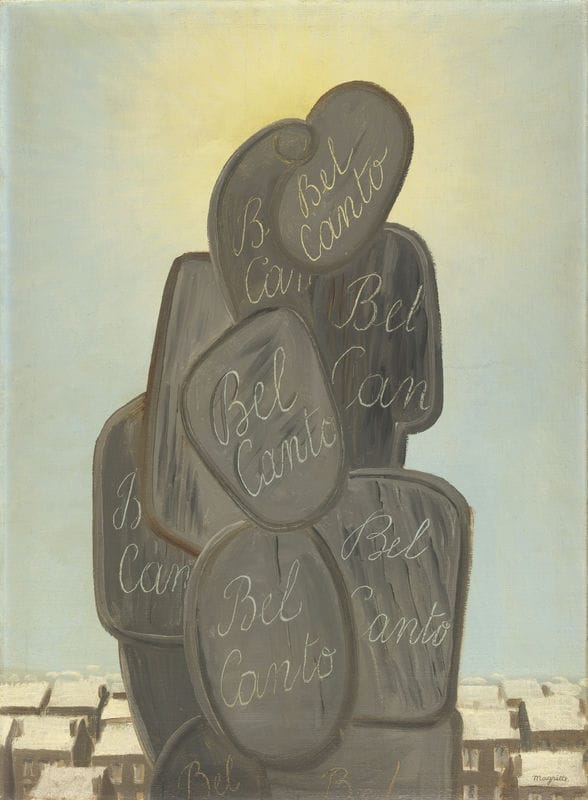 Bel
Canto
B
Can
Bel
Can
Bel
Canto
B
Can
Bel
anto
Bel
Canto
Bel
Magritte